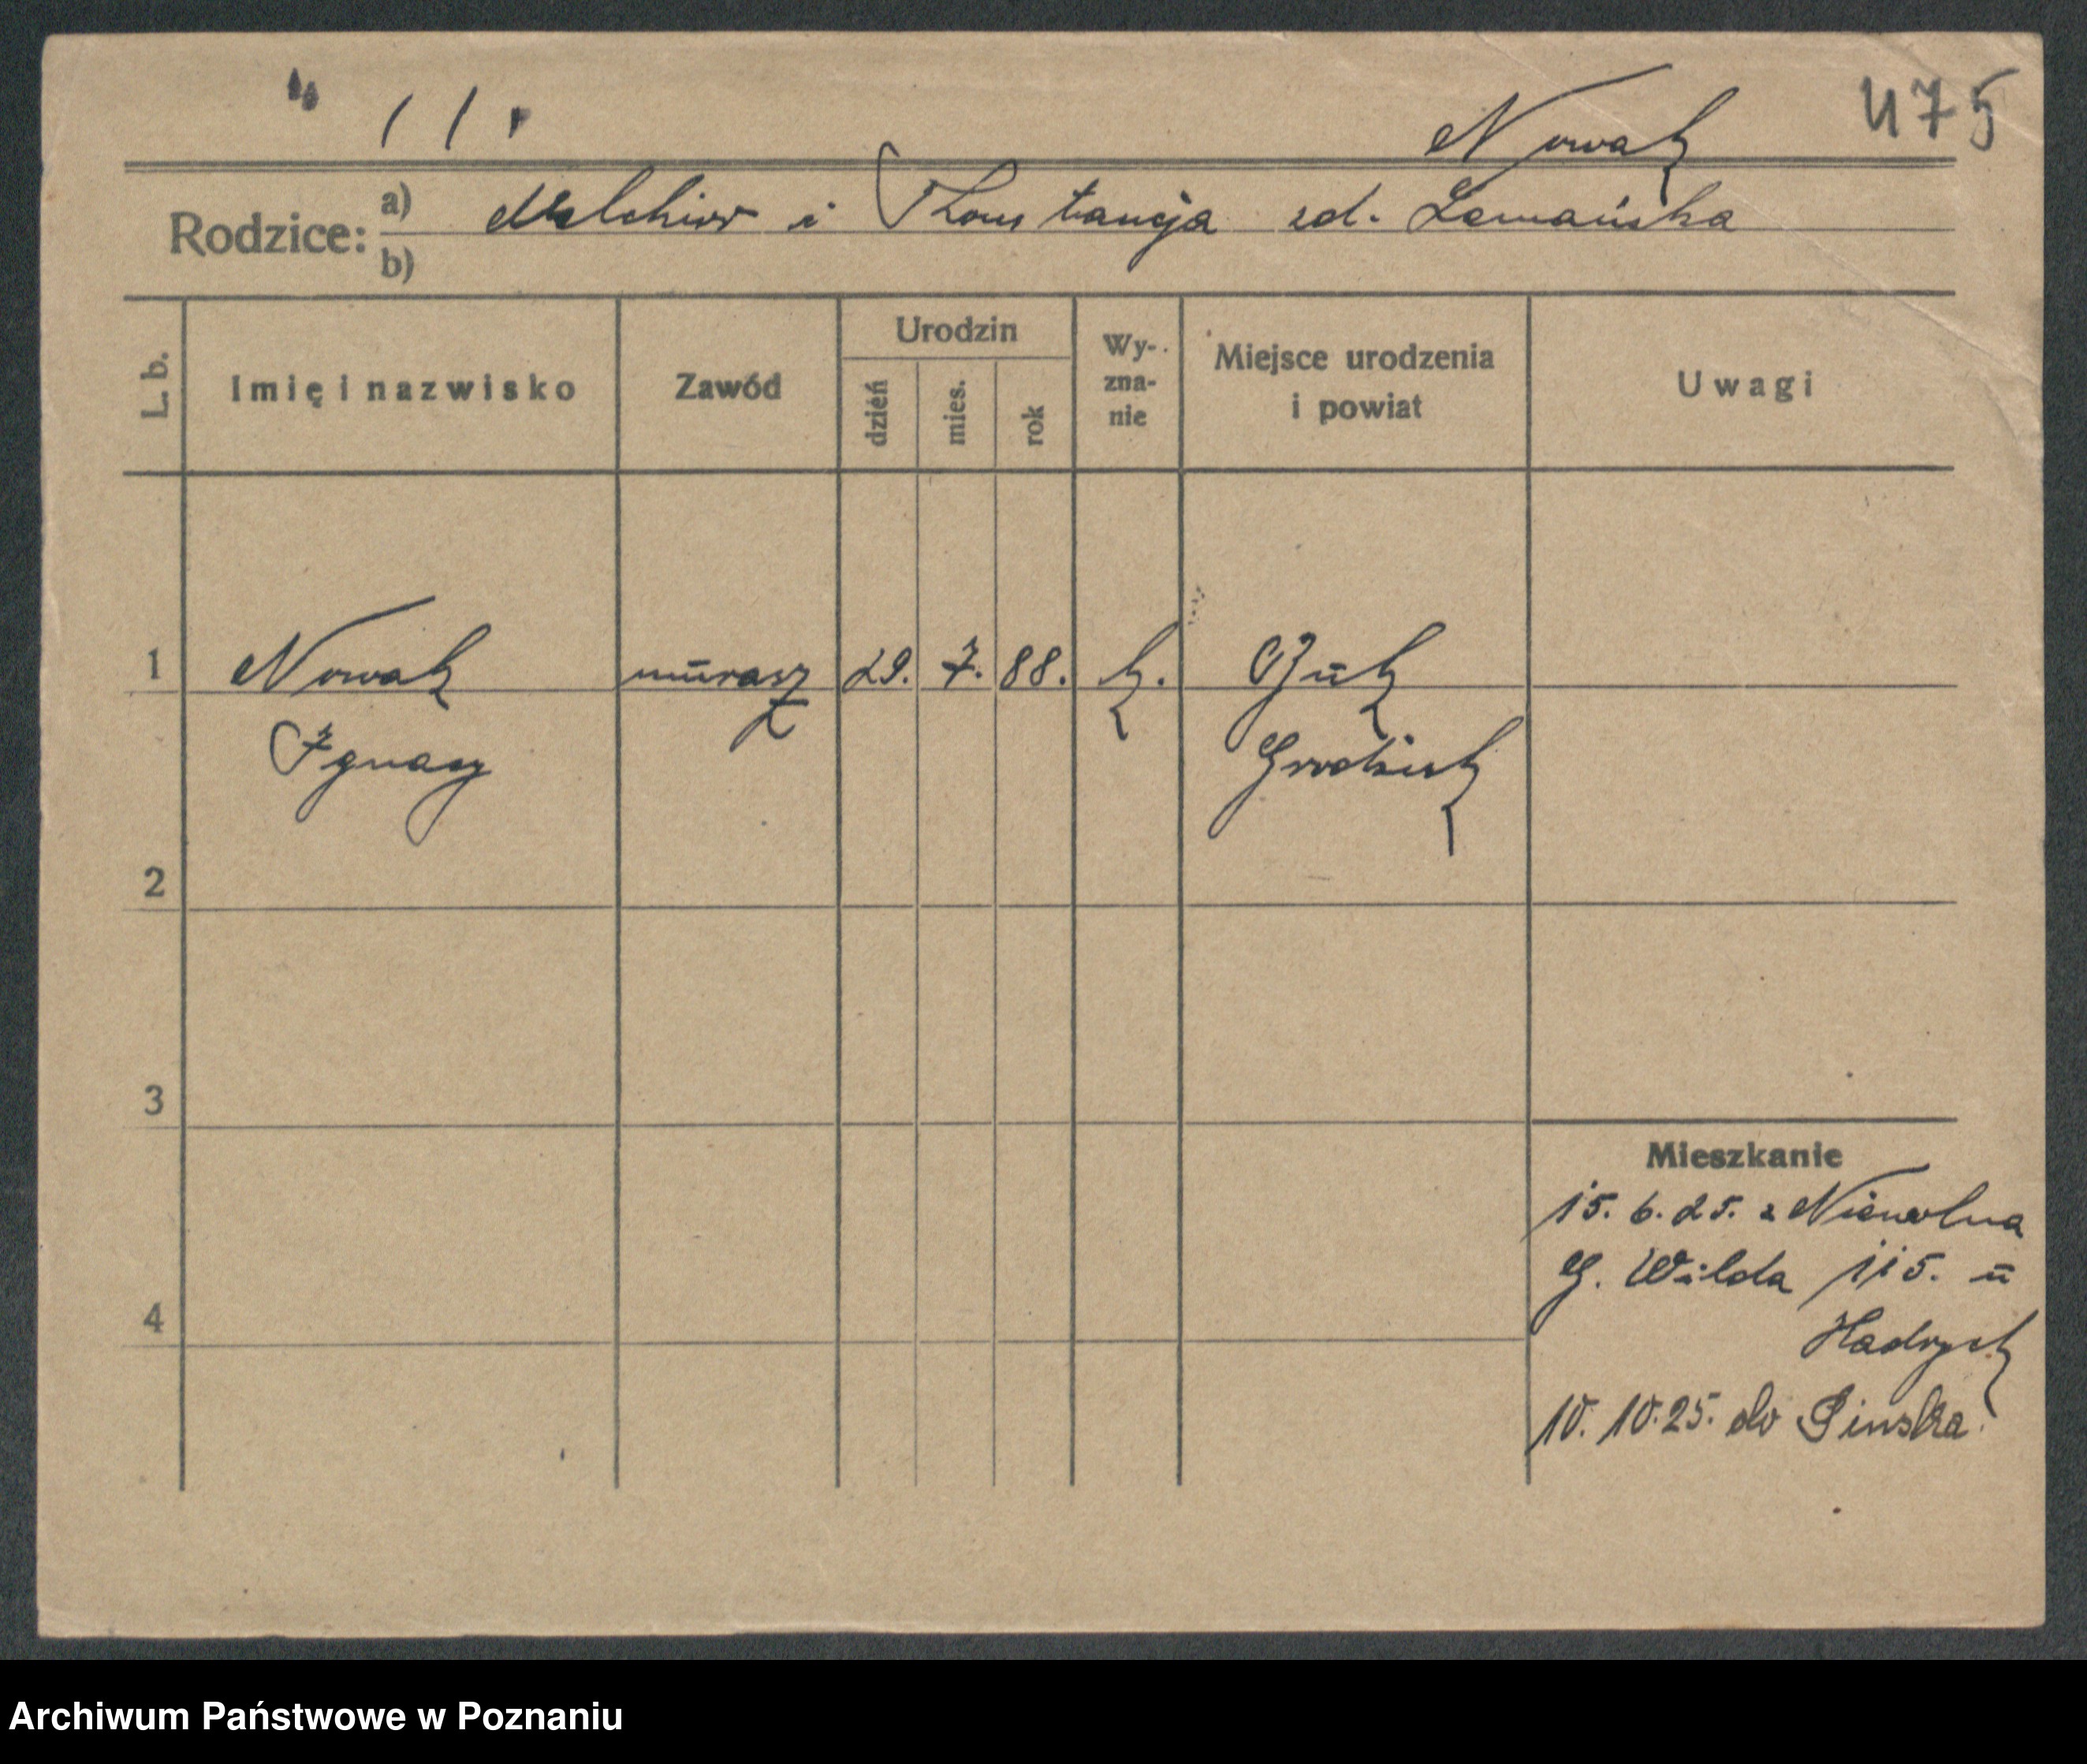 Nowak 475
Rodzice: a) Melchior i Konstancja zd. Lemańska
b)
L. b. Imię i nazwisko Zawód Urodzin dzień mies. rok Wy-zna-nie Miejsce urodzenia i powiat Uwagi
1 Nowak murarz 29. 7. 88. k. Buk
Ignacy Grodzisk
2
3
Mieszkanie
15. 6. 25. z Niewolna
G. Wilda 115. u
4
Hadrych
10. 10. 25. do Pinska.
Archiwum Państwowe w Poznaniu